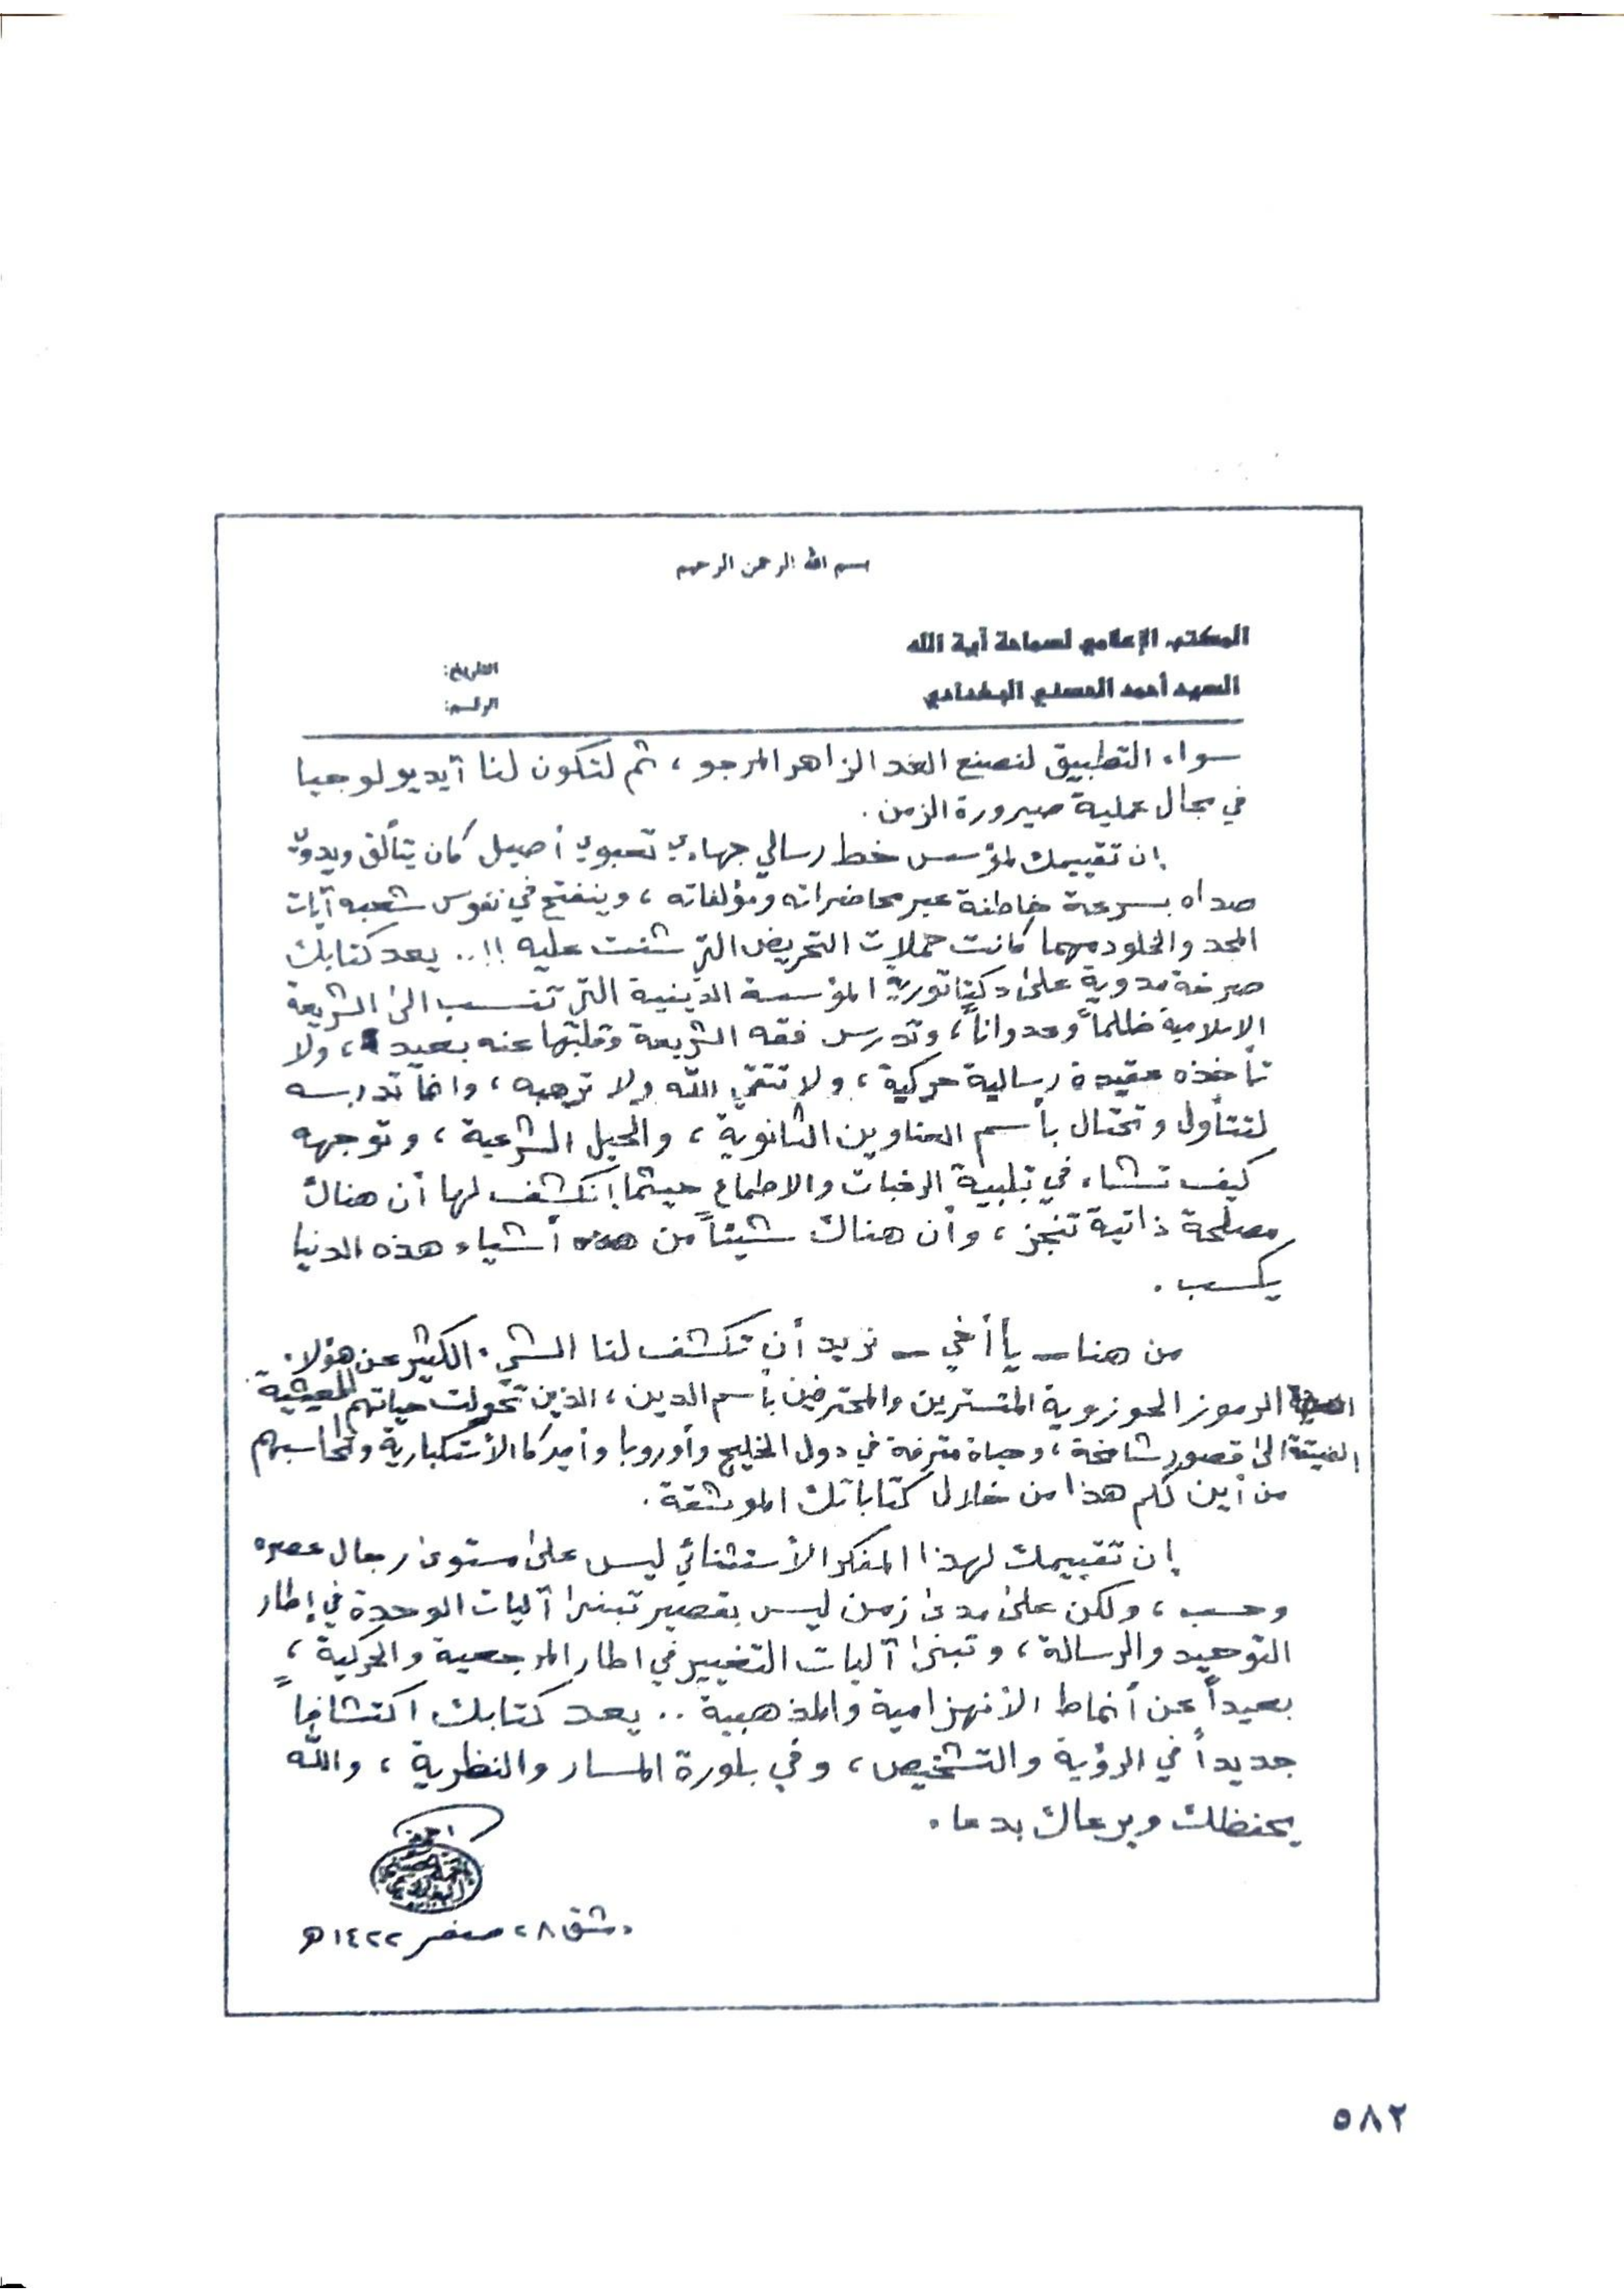 بسم الله الرحمن الرحيم
المكتب الإعلامي لسماحة آية الله
السيد أحمد الحسني البغدادي
التاريخ:
الرقم:
سواء التطبيق لنصنع الغد الزاهر المرجو، ثم لتكون لنا آيديولوجيا
في مجال عملية صيرورة الزمن.
إن تقييمك لمؤسس خط رسالي جهادي تعبوي أصيل كان يتألق ويدوّي
صداه بسرعة خاطفة عبر محاضراته ومؤلفاته، وينفتح في نفوس شعبه آيات
المجد والخلود مهما كانت حملات التحريض التي شنت عليه !!.. يعد كتابك
صرخة مدوية على دكتاتورية المؤسسة الدينية التي تنسب الى الشريعة
الاسلامية ظلماً وعدواناً، وتدرس فقه الشريعة وقلبها عنه بعيد، ولا
تأخذه عقيدة رسالية حركية، ولا تتقي الله ولا ترهبه، وانما تدرسه
لتتأول وتحتال بأسم العناوين الثانوية، والحيل الشرعية، وتوجهه
كيف تشاء في تلبية الرغبات والاطماع حيثما إنكشف لها أن هناك
مصلحة ذاتية تنجز، وأن هناك شيئاً من أشياء هذه الدنيا
يكسب.
من هنا - يا أخي - نريد أن تكشف لنا الشيء الكثير عن هؤلاء
الرموز الحوزوية المتسترين والمحترفين بأسم الدين، الذين تحولت حياتهم المعيشية
الميتة الى قصور شامخة، وحياة مترفة في دول الخليج وأوروبا وأمريكا الأستكبارية وتحاسبهم
من أين لكم هذا من خلال كتاباتك الموثقة.
إن تقييمك لهذا المفكر الأستثنائي ليس على مستوى رجال عصره
وحسب، ولكن على مدى زمن ليس بقصير تبنى آليات الوحدة في إطار
التوحيد والرسالة، وتبنى آليات التغيير في اطار المرجعية والحركية،
بعيداً عن أنماط الأنهزامية والمذهبية .. يعد كتابك اكتشافاً
جديداً في الرؤية والتشخيص، وفي بلورة المسار والنظرية، والله
يحفظك ويرعاك بدعاء.
دمشق ٢٨ صفر ١٤٢٢ه
٥٨٢